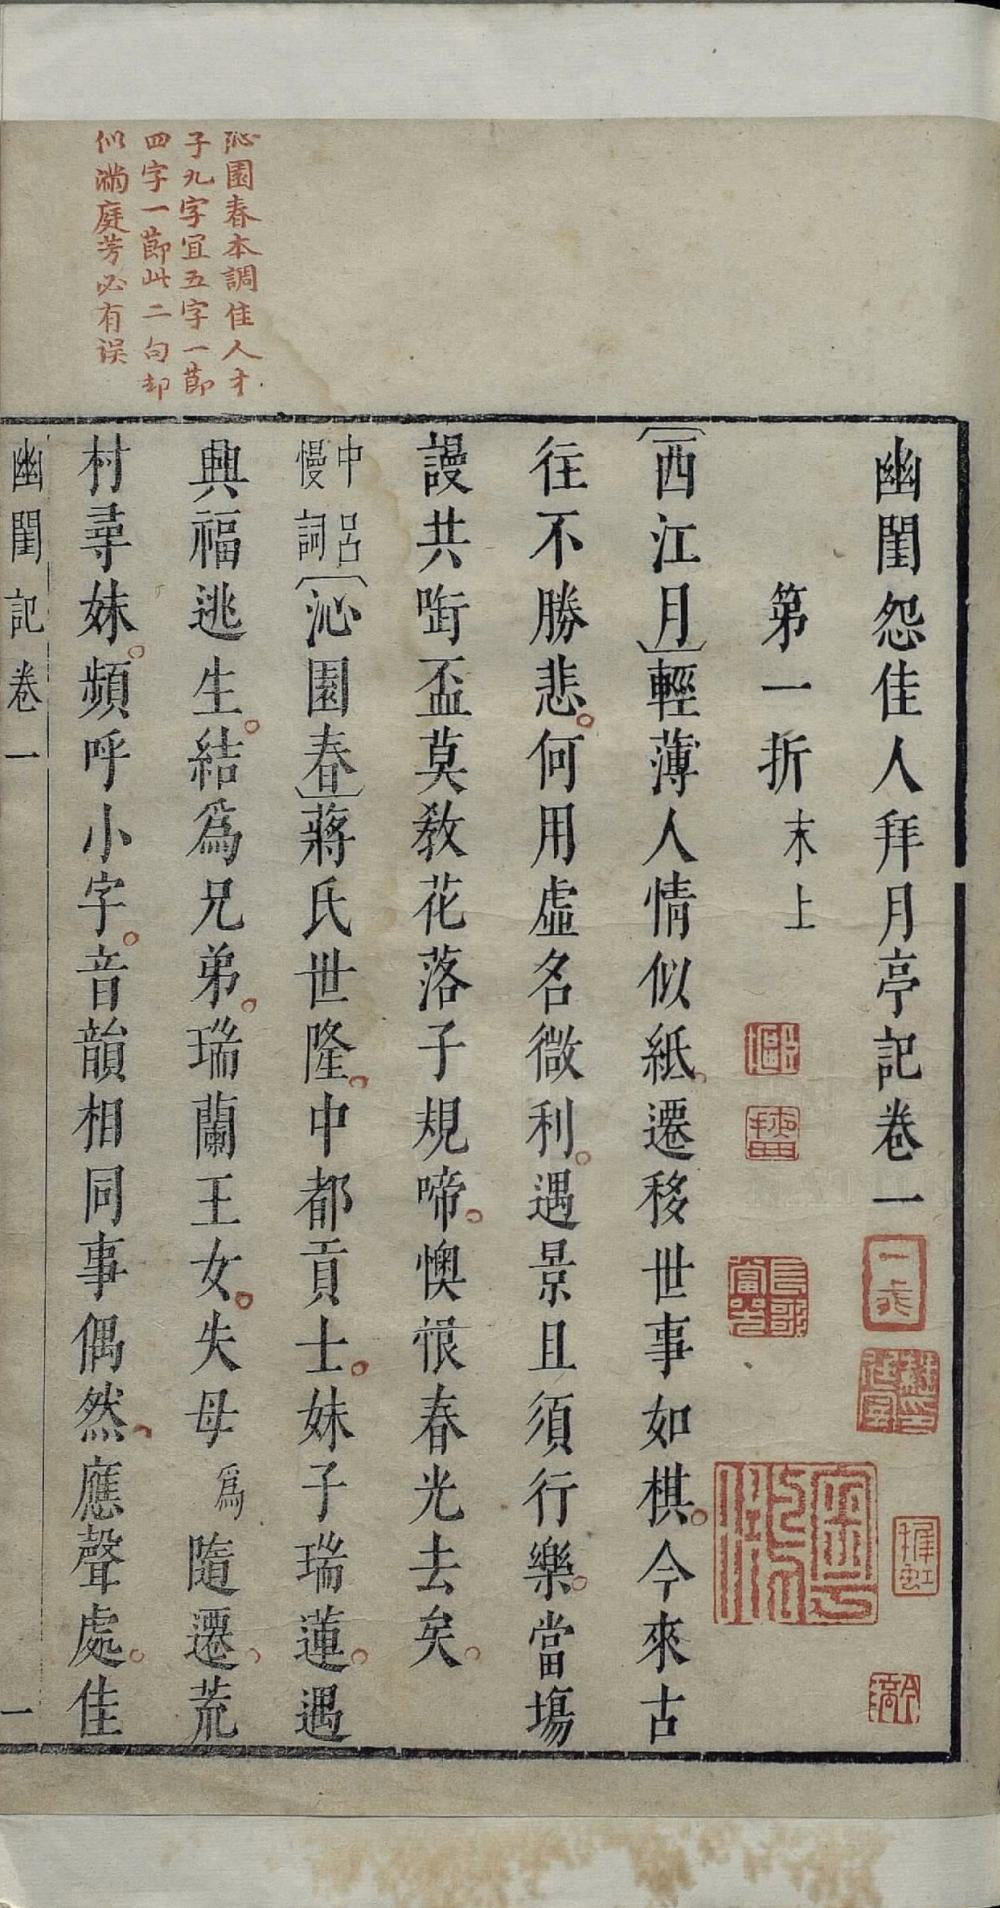 沁園春本調佳人才
子九字宜五字一節
四字一節此二句却
似滿庭芳必有误
幽閨怨佳人拜月亭記卷一
第一折 末上
〔西江月〕輕薄人情似紙。遷移世事如棋。今來古
往不勝悲。何用虛名微利。遇景且須行樂。當場
謾共啣盃莫教花落子規啼。懊恨春光去矣。
中呂慢詞〔沁園春〕蔣氏世隆。中都貢士。妹子瑞蓮。遇
興福逃生。結爲兄弟。瑞蘭王女。失母爲隨遷。荒
村尋妹。頻呼小字。音韻相同事偶然。應聲處。佳
幽閨記卷一
一